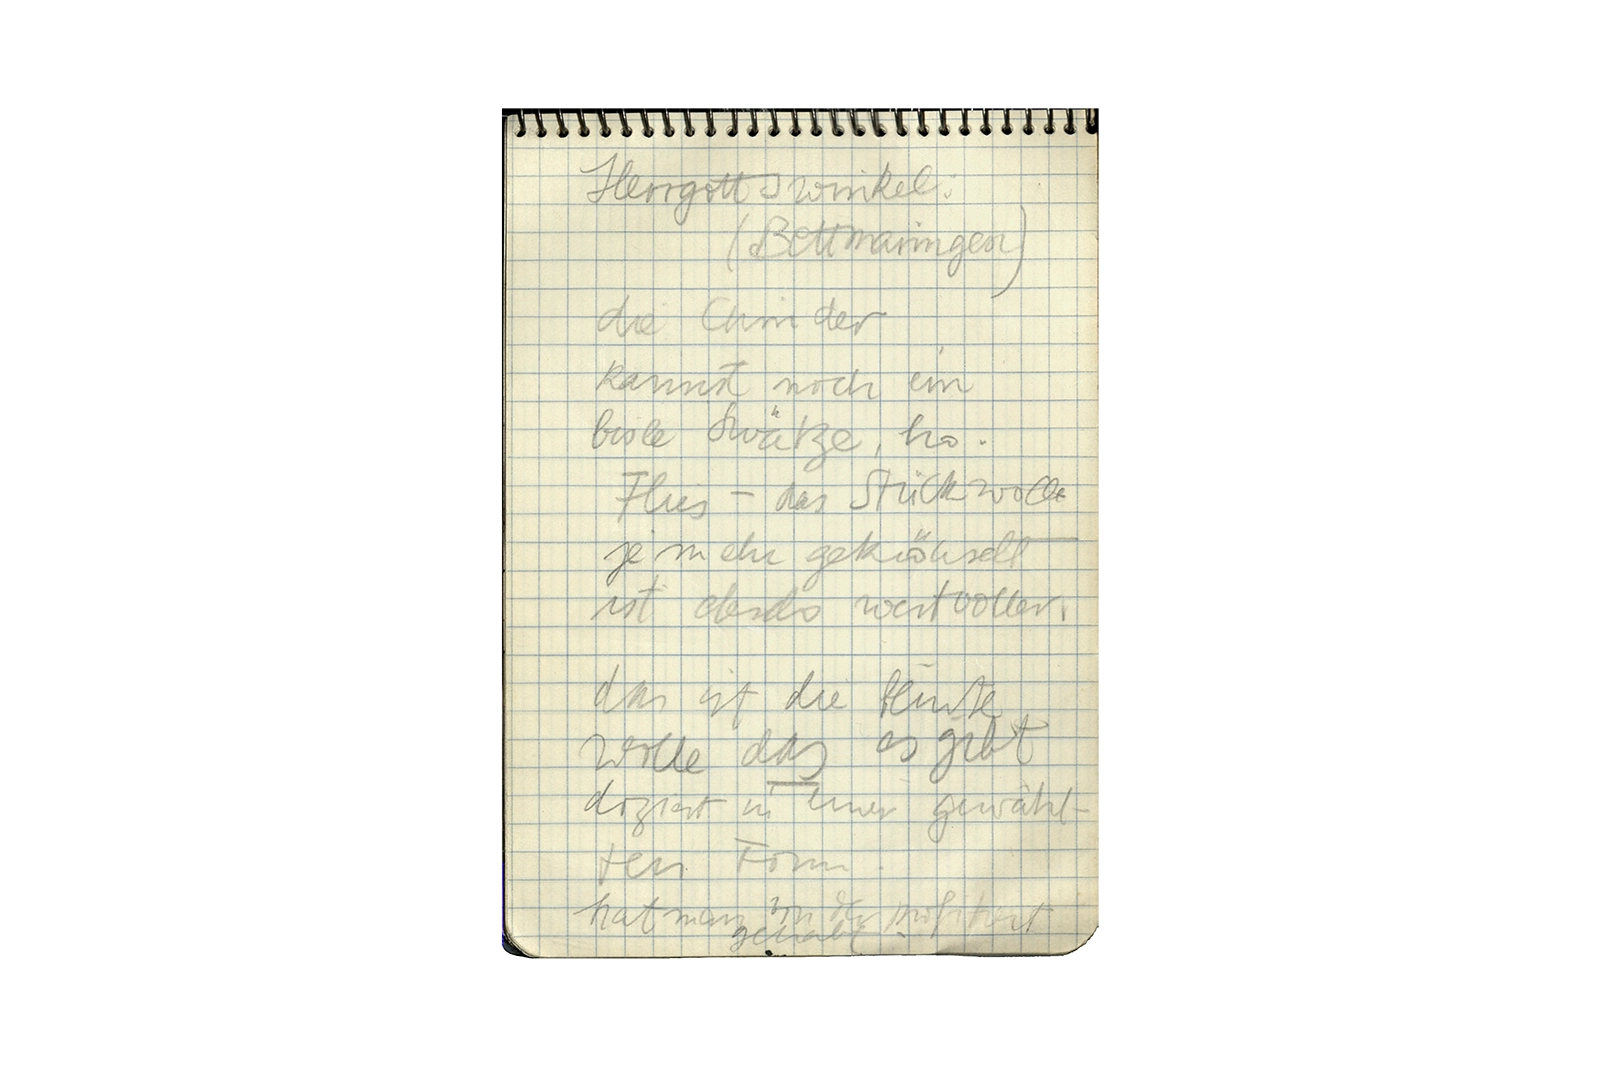 Herrgottswinkel:
(Bettmaringen)
die Chinder
kannst noch ein
bisle Swätze, ho.
Flies – das Stück wolle
je mehr gekröuselt
ist desdo wertvoller.
das ist die feinste
wolle das es gibt
doziert in einer gewähl-
ten Form.
hat man von der profitiert